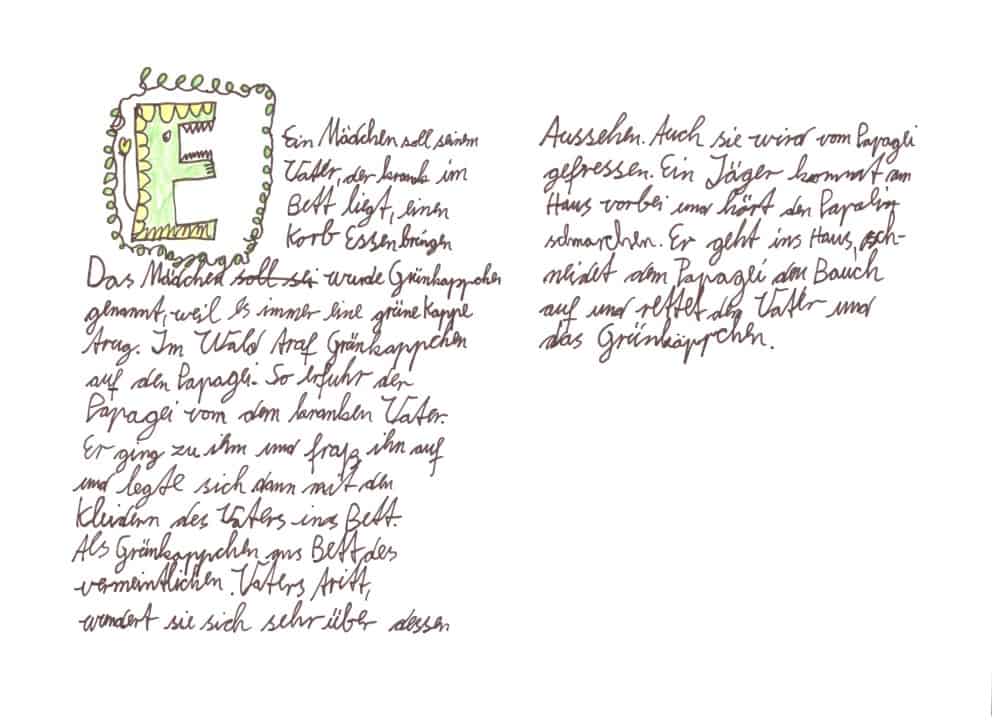 E
Ein Mädchen soll seinem
Vater, der krank im
Bett liegt, einen
Korb Essen bringen
Das Mädchen soll sei wurde Grünkäppchen
genannt, weil es immer eine grüne Kappe
trug. Im Wald traf Grünkäppchen
auf den Papagei. So erfuhr der
Papagei von dem kranken Vater.
Er ging zu ihm und fraß ihn auf
und legte sich dann mit den
Kleidern des Vaters ins Bett.
Als Grünkäppchen ans Bett des
vermeintlichen Vaters tritt,
wundert sie sich sehr über dessen
Aussehen. Auch sie wird vom Papagei
gefressen. Ein Jäger kommt am
Haus vorbei und hört den
schnarchen. Er geht ins Haus, sch-
neidet dem Papagei den Bauch
auf und rettet den Vater und
das Grünkäppchen.